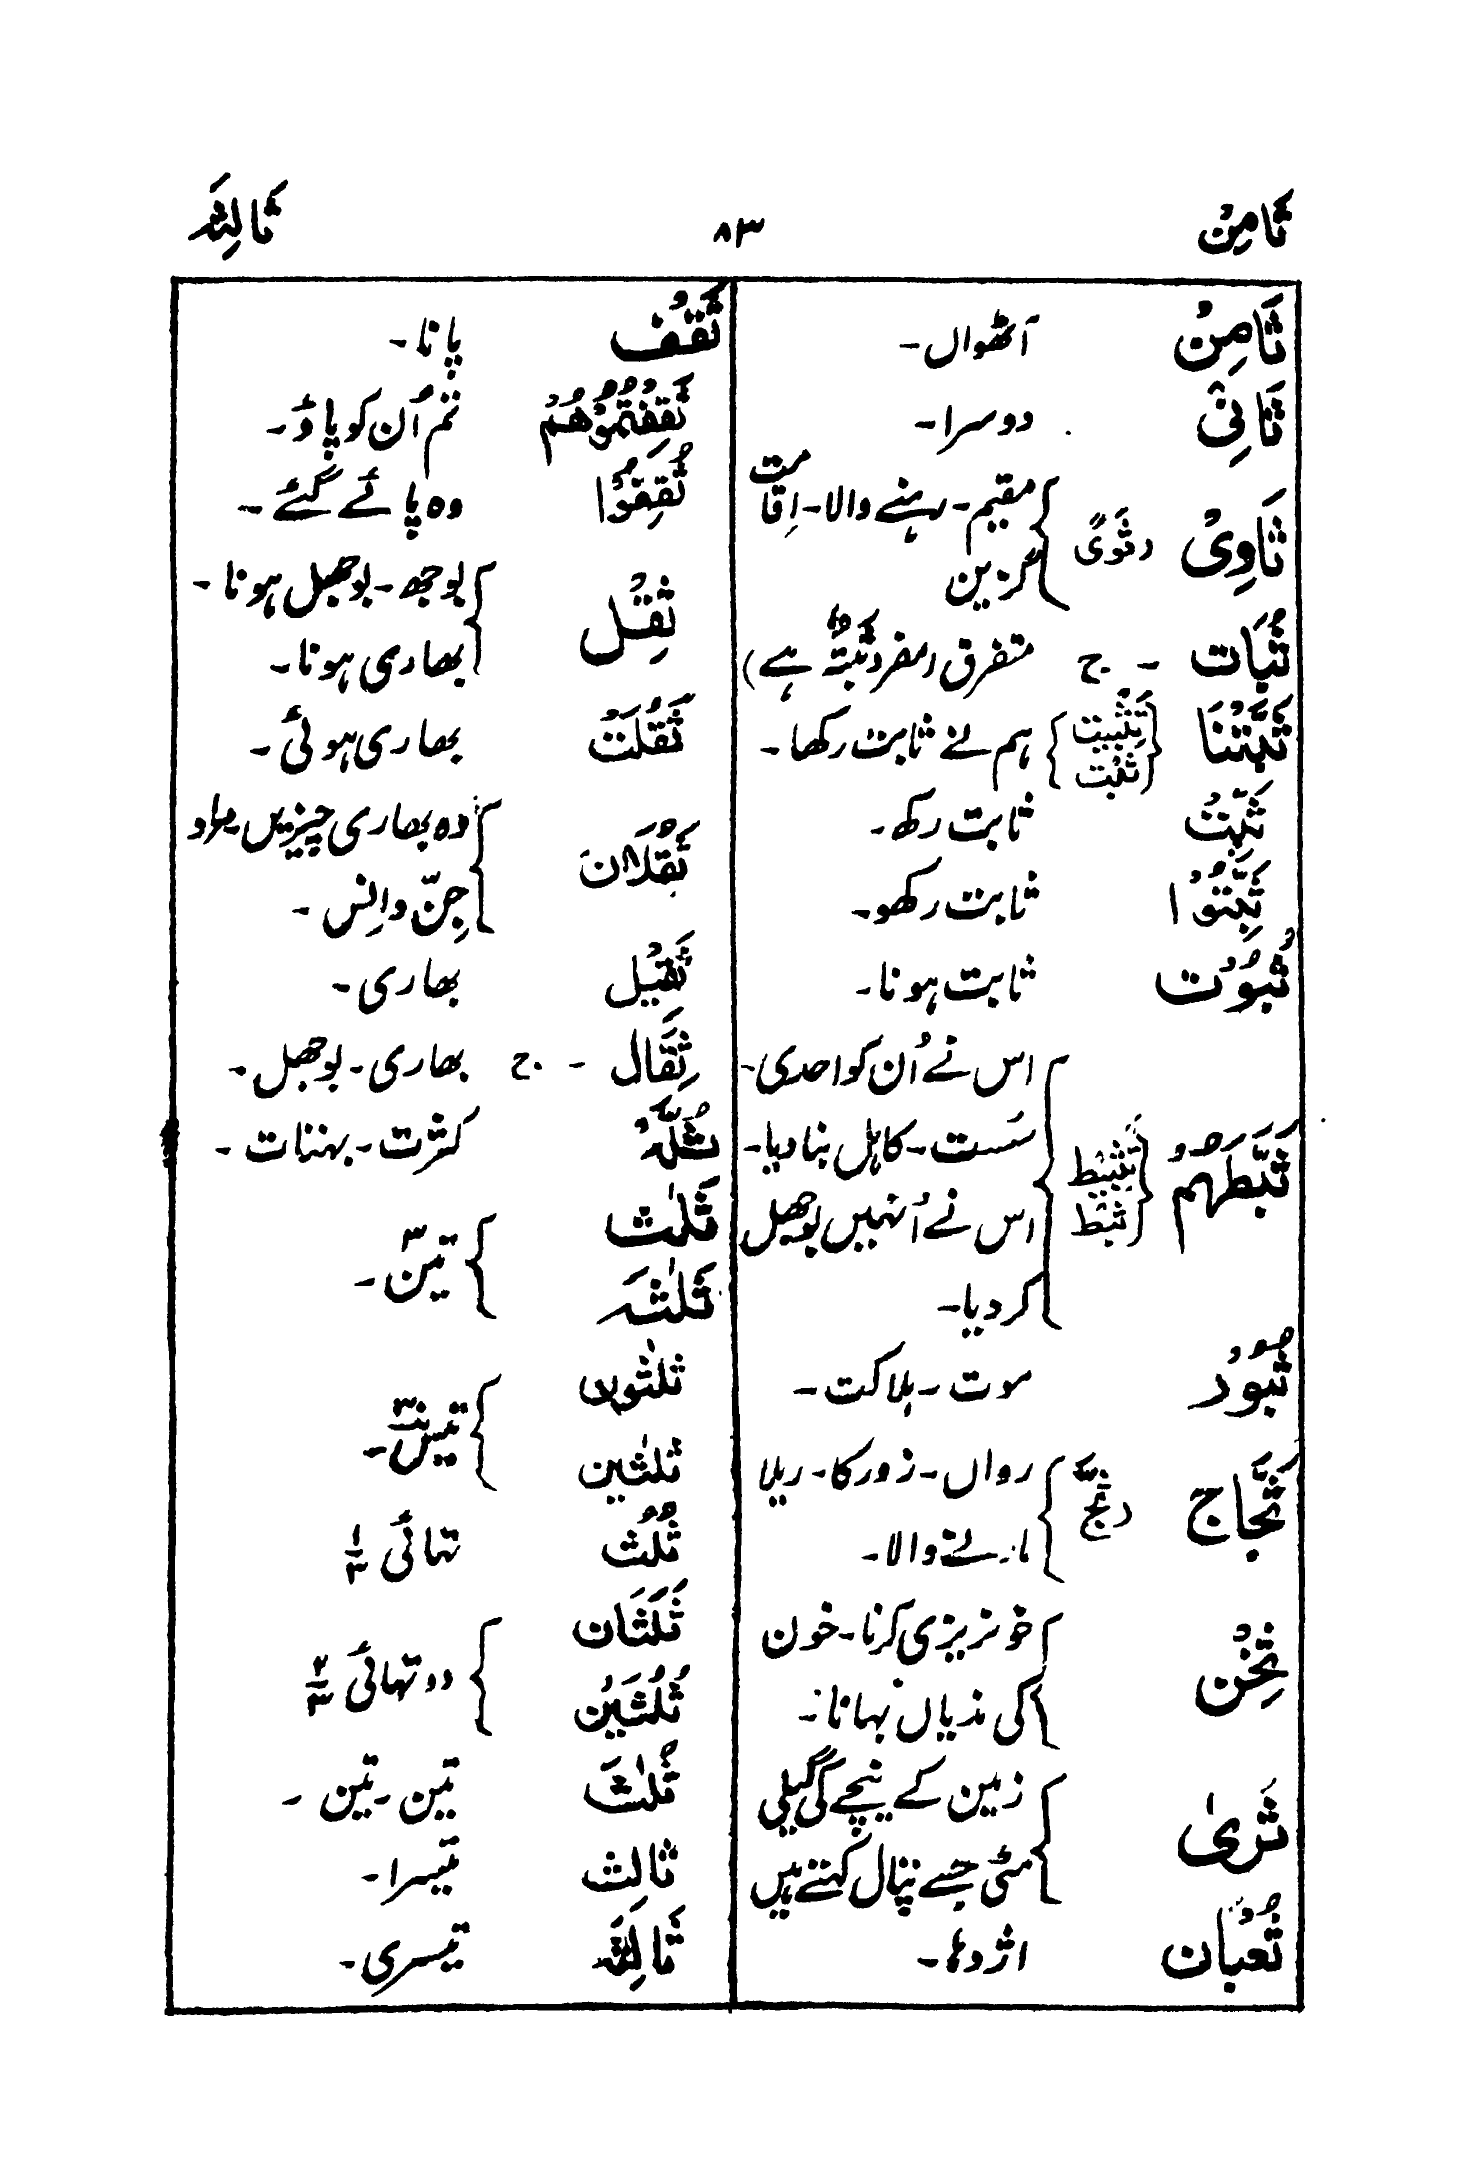 ثَامِنْ ۸۳ ثَالِثَہ
ثَامِنْ آٹھواں۔
ثَانِیْ دوسرا۔
ثَاوِیْ (ثَوَیً) مقیم۔ رہنے والا۔ اِقامت
گزین
ثُبَات ۔ ج متفرق (مفرد ثُبَۃٌ ہے)
ثَبَّتْنَا (تَثْبِیت ہم نے ثابت رکھا۔
ثبت)
ثَبِّتْ ثابت رکھ۔
ثَبِّتُوْا ثابت رکھو۔
ثُبُوْت ثابت ہونا۔
اس نے اُن کو احدی۔
ثَبَّطَهُمْ (تَثْبِیْط سُست۔ کاہل بنا دیا۔
ثبط) اس نے اُنہیں بوجھل
کر دیا۔
ثُبُوْر موت۔ ہلاکت۔
ثَجَّاج (ثَجّ) رواں۔ زور کا۔ ریلا
مارنے والا۔
ثِخْن خونریزی کرنا۔ خون
کی ندیاں بہانا۔
ثَریٰ زمین کے نیچے کی گیلی
مٹی جسے پتال کہتے ہیں
ثُعْبَان اژدہا۔
ثَقْف پانا۔
ثَقِفْتُمُوْهُمْ تم اُن کو پاؤ۔
ثُقِفُوْا وہ پائے گئے۔
ثِقْل بوجھ۔ بوجھل ہونا۔
بھاری ہونا۔
ثَقُلَتْ بھاری ہوئی۔
ثَقَلَان دو بھاری چیزیں مراد
جِنّ و اِنس۔
ثَقِیْل بھاری۔
ثِقَال ۔ ج بھاری۔ بوجھل۔
ثُلَّۃ کثرت۔ بہتات۔
ثَلٰث
تین ۳۔
ثَلٰثَہ
ثلٰثون
تیس ۳۰۔
ثلٰثین
ثُلُث تہائی ۱/۳
ثُلُثَان
دو تہائی ۲/۳
ثُلُثَیْن
ثُلٰثَ تین۔ تین۔
ثَالِث تیسرا۔
ثَالِثَۃ تیسری۔